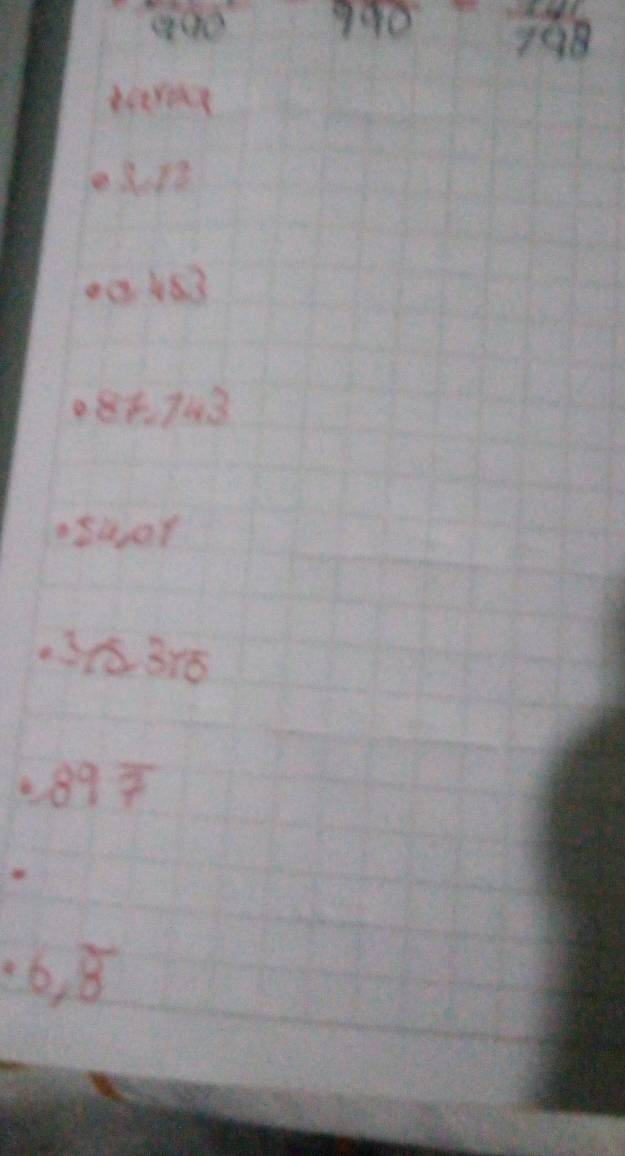 990 990 = 798
tarea
• 3,12
• 0.453
• 87,743
• 54,01
• 315,315
• 89 7̅
•
• 6,8̅